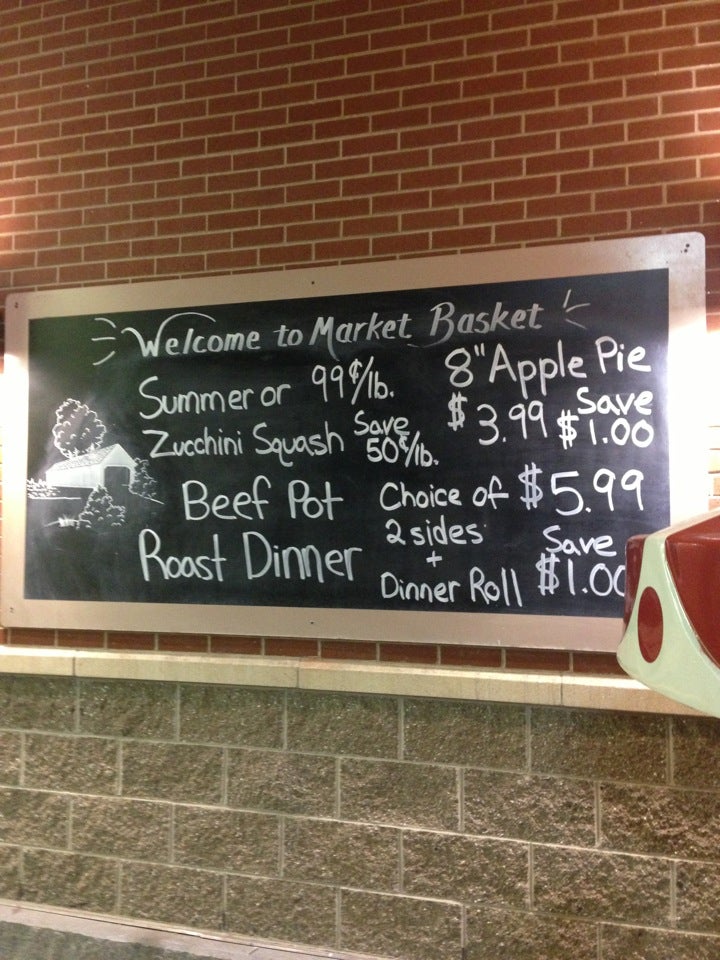 Welcome to Market Basket
Summer or 99¢/lb.
Zucchini Squash Save
50¢/lb.
8" Apple Pie
$3.99 Save
$1.00
Beef Pot
Roast Dinner
Choice of $5.99
2 sides
+
Dinner Roll
Save
$1.00